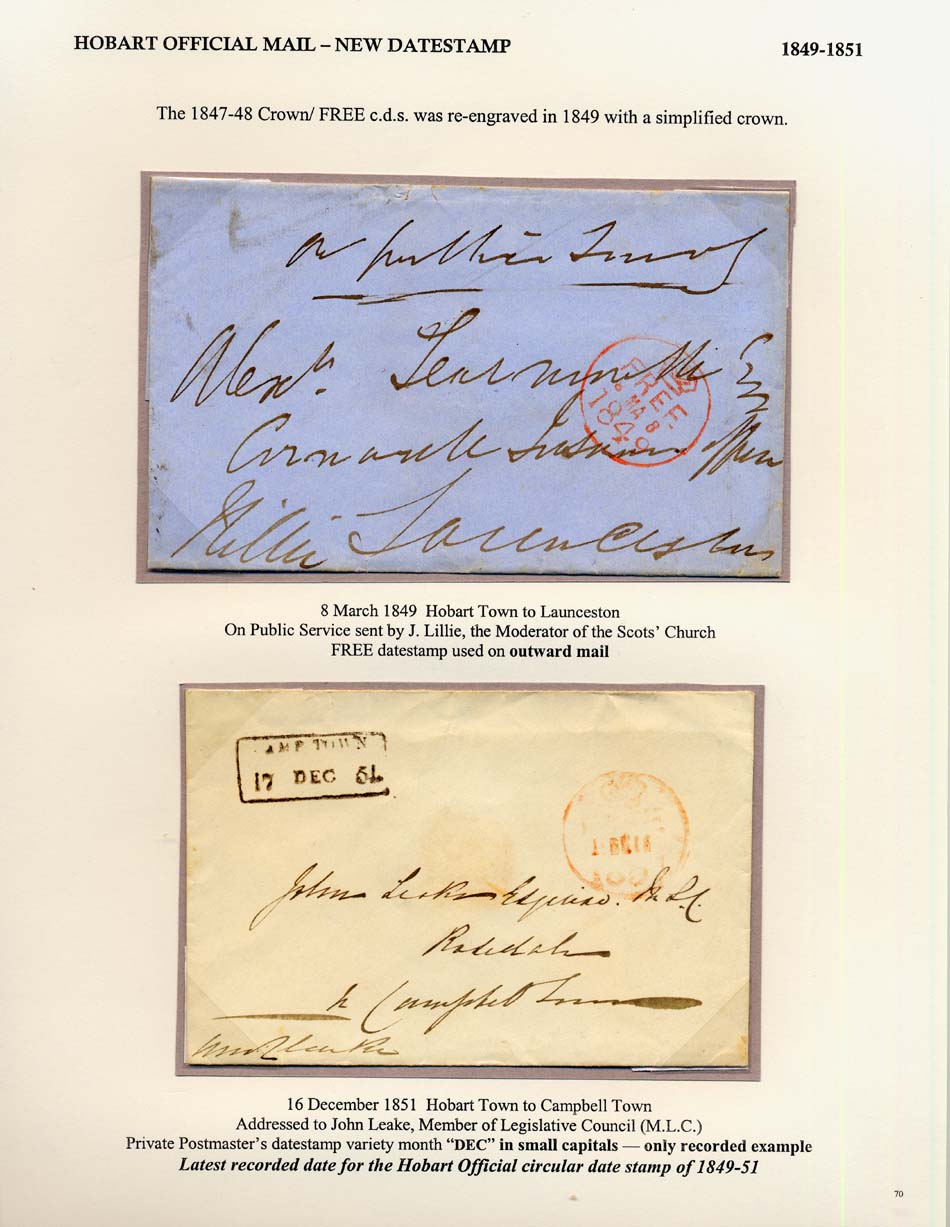 HOBART OFFICIAL MAIL – NEW DATESTAMP 1849-1851
The 1847-48 Crown/ FREE c.d.s. was re-engraved in 1849 with a simplified crown.
On public Service
Alexr. Learmonth Esq
FREE
MA 8
1849
Cornwall Insurance Office
J Lillie Launceston
8 March 1849 Hobart Town to Launceston
On Public Service sent by J. Lillie, the Moderator of the Scots’ Church
FREE datestamp used on outward mail
AMP TOWN
17 DEC 51
John Leake Esquire. M.L.C.
Rosedale
Campbell Town
16 December 1851 Hobart Town to Campbell Town
Addressed to John Leake, Member of Legislative Council (M.L.C.)
Private Postmaster’s datestamp variety month “DEC” in small capitals — only recorded example
Latest recorded date for the Hobart Official circular date stamp of 1849-51
70